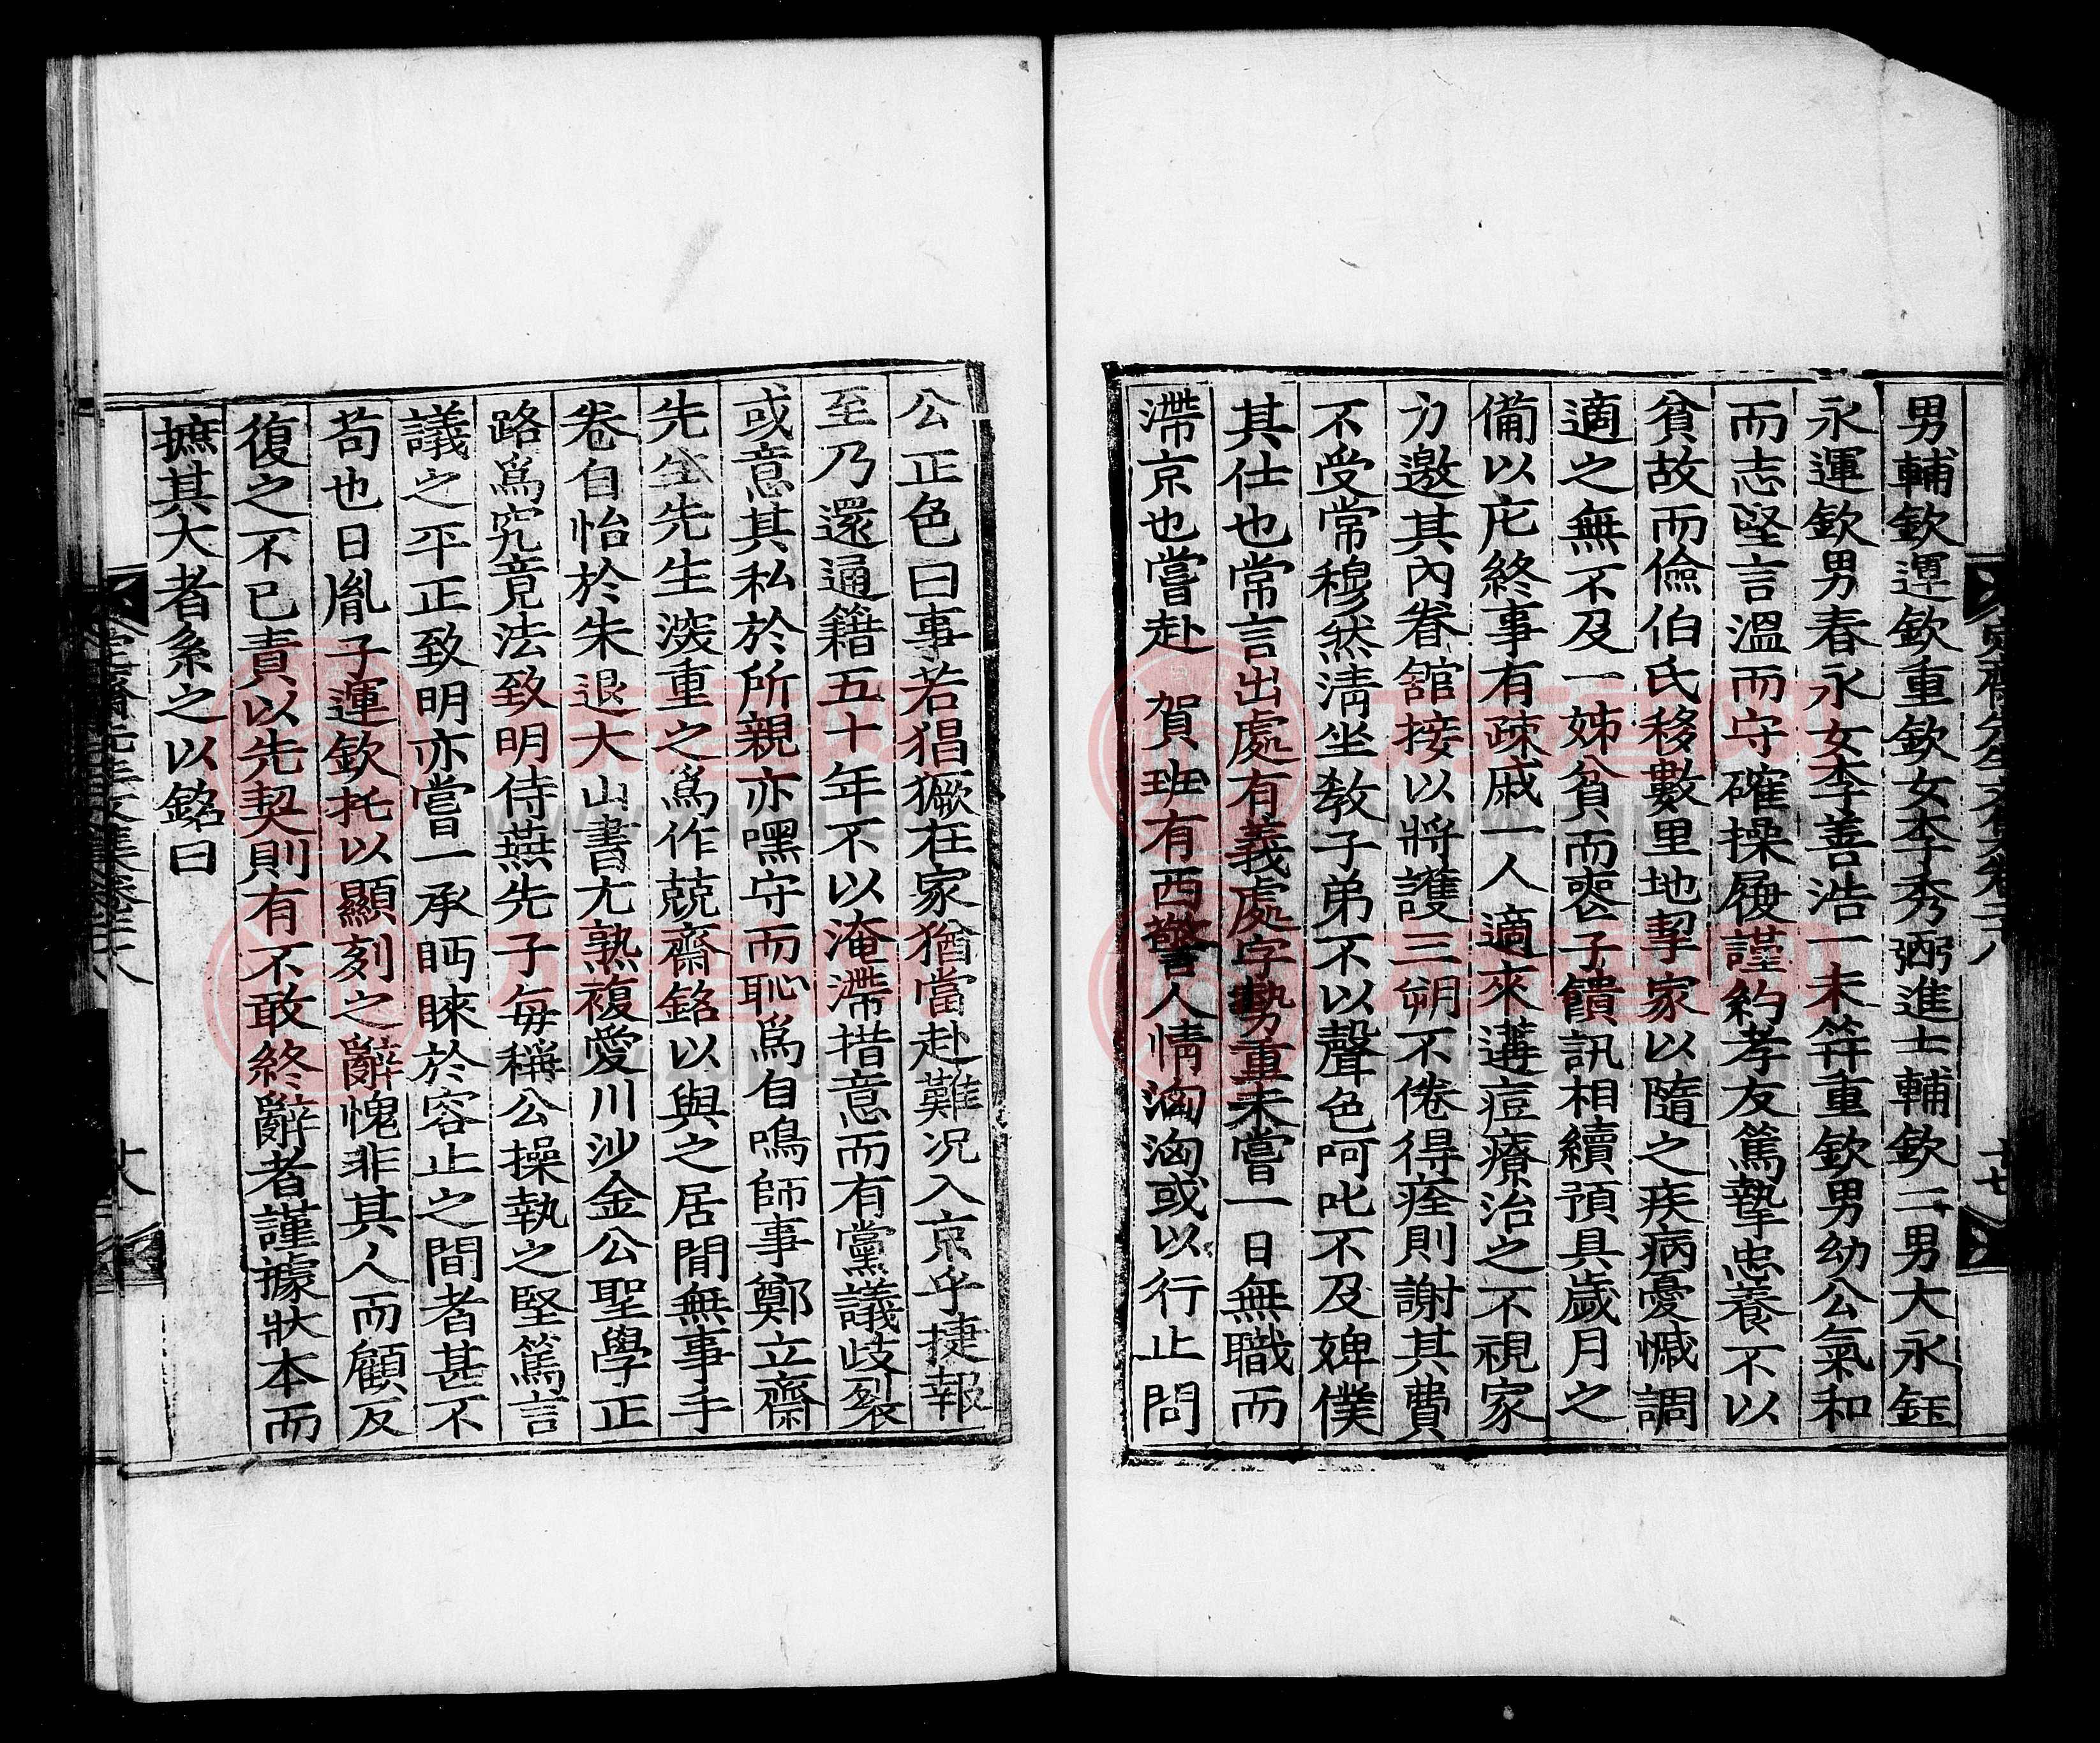 男輔欽運欽重欽女李秀弼進士輔欽二男大永鈺
永運欽男春永女李善浩一未笄重欽男幼公氣和
而志堅言溫而守確操履謹約孝友篤摯忠養不以
貧故而儉伯氏移數里地挈家以隨之疾病憂慽調
適之無不及一姊貧而喪子饋訊相續預具歲月之
備以庀終事有疎戚一人適來遘痘療治之不視家
力邀其內眷舘接以將護三朔不倦得痊則謝其費
不受常穆然淸坐敎子弟不以聲色呵叱不及婢僕
其仕也常言出處有義處字勢重未嘗一日無職而
滯京也嘗赴 賀班有西警人情洶洶或以行止問
公正色曰事若猖獗在家猶當赴難况入京乎捷報
至乃還通籍五十年不以淹滯措意而有黨議歧裂
或意其私於所親亦嘿守而恥爲自鳴師事鄭立齋
先生先生深重之爲作兢齋銘以與之居閒無事手
卷自怡於朱退大山書尤熟複愛川沙金公聖學正
路爲究竟法致明侍蕪先子每稱公操執之堅篤言
議之平正致明亦嘗一承眄睞於容止之間者甚不
苟也日胤子運欽托以顯刻之辭愧非其人而顧反
復之不已責以先契則有不敢終辭者謹據狀本而
摭其大者系之以銘曰